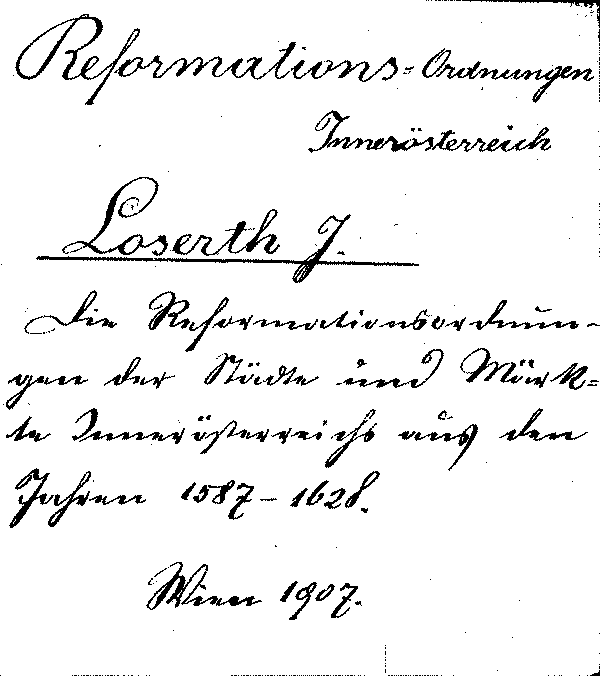 Reformations-Ordnungen
Innerösterreich
Loserth J.
Die Reformationsordnun-
gen der Städte und Märk-
te Innerösterreichs aus den
Jahren 1587-1628.
Wien 1907.